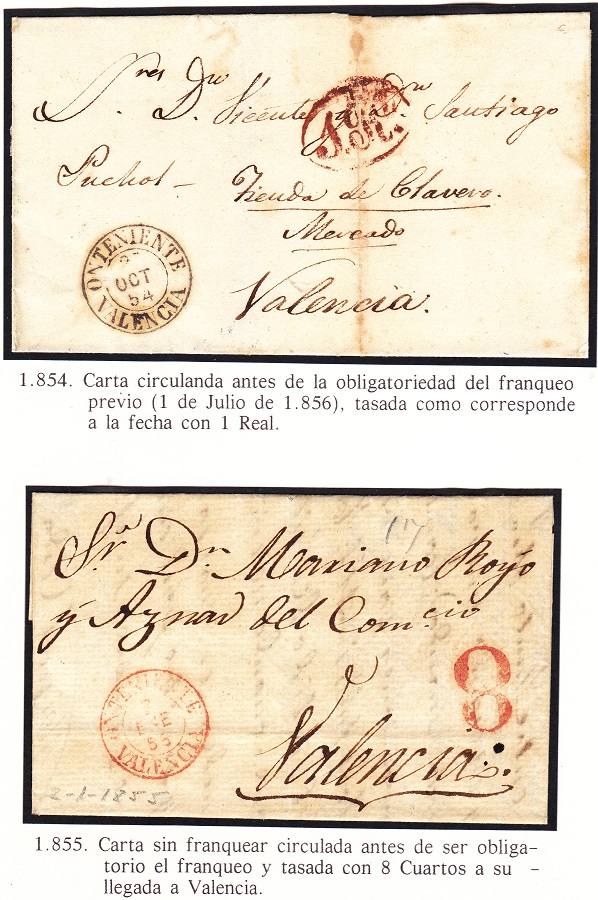 Sres Dn
S. D. Vicente y Dn. Santiago
Puchol - Tienda de Clavero.
Mercado
Valencia.
ONTENIENTE
OCT
54
VALENCIA
1.854. Carta circulanda antes de la obligatoriedad del franqueo
previo (1 de Julio de 1.856), tasada como corresponde
a la fecha con 1 Real.
(17
Sr. Dn. Mariano Royo
y Aznar del Com.cio
8
ONTENIENTE
2
ENE
55
VALENCIA
Valencia.
2-1-1855
1.855. Carta sin franquear circulada antes de ser obliga-
torio el franqueo y tasada con 8 Cuartos a su -
llegada a Valencia.